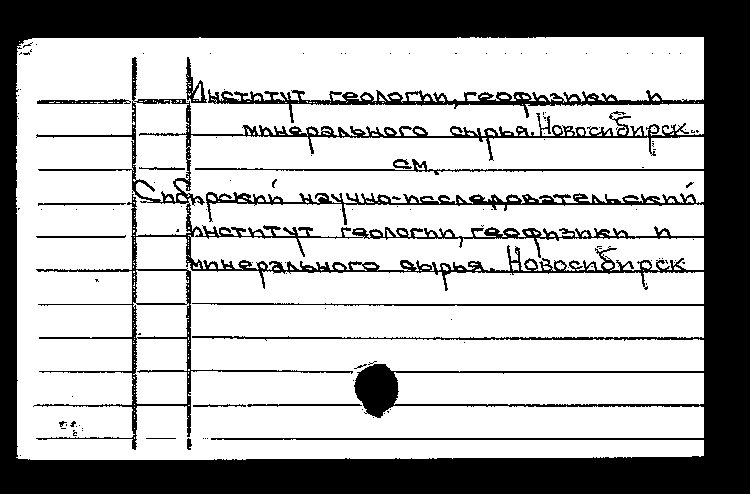 Институт геологии, геофизики и
минерального сырья. Новосибирск.
см.
Сибирский научно-исследовательский
институт геологии, геофизики и
минерального сырья. Новосибирск